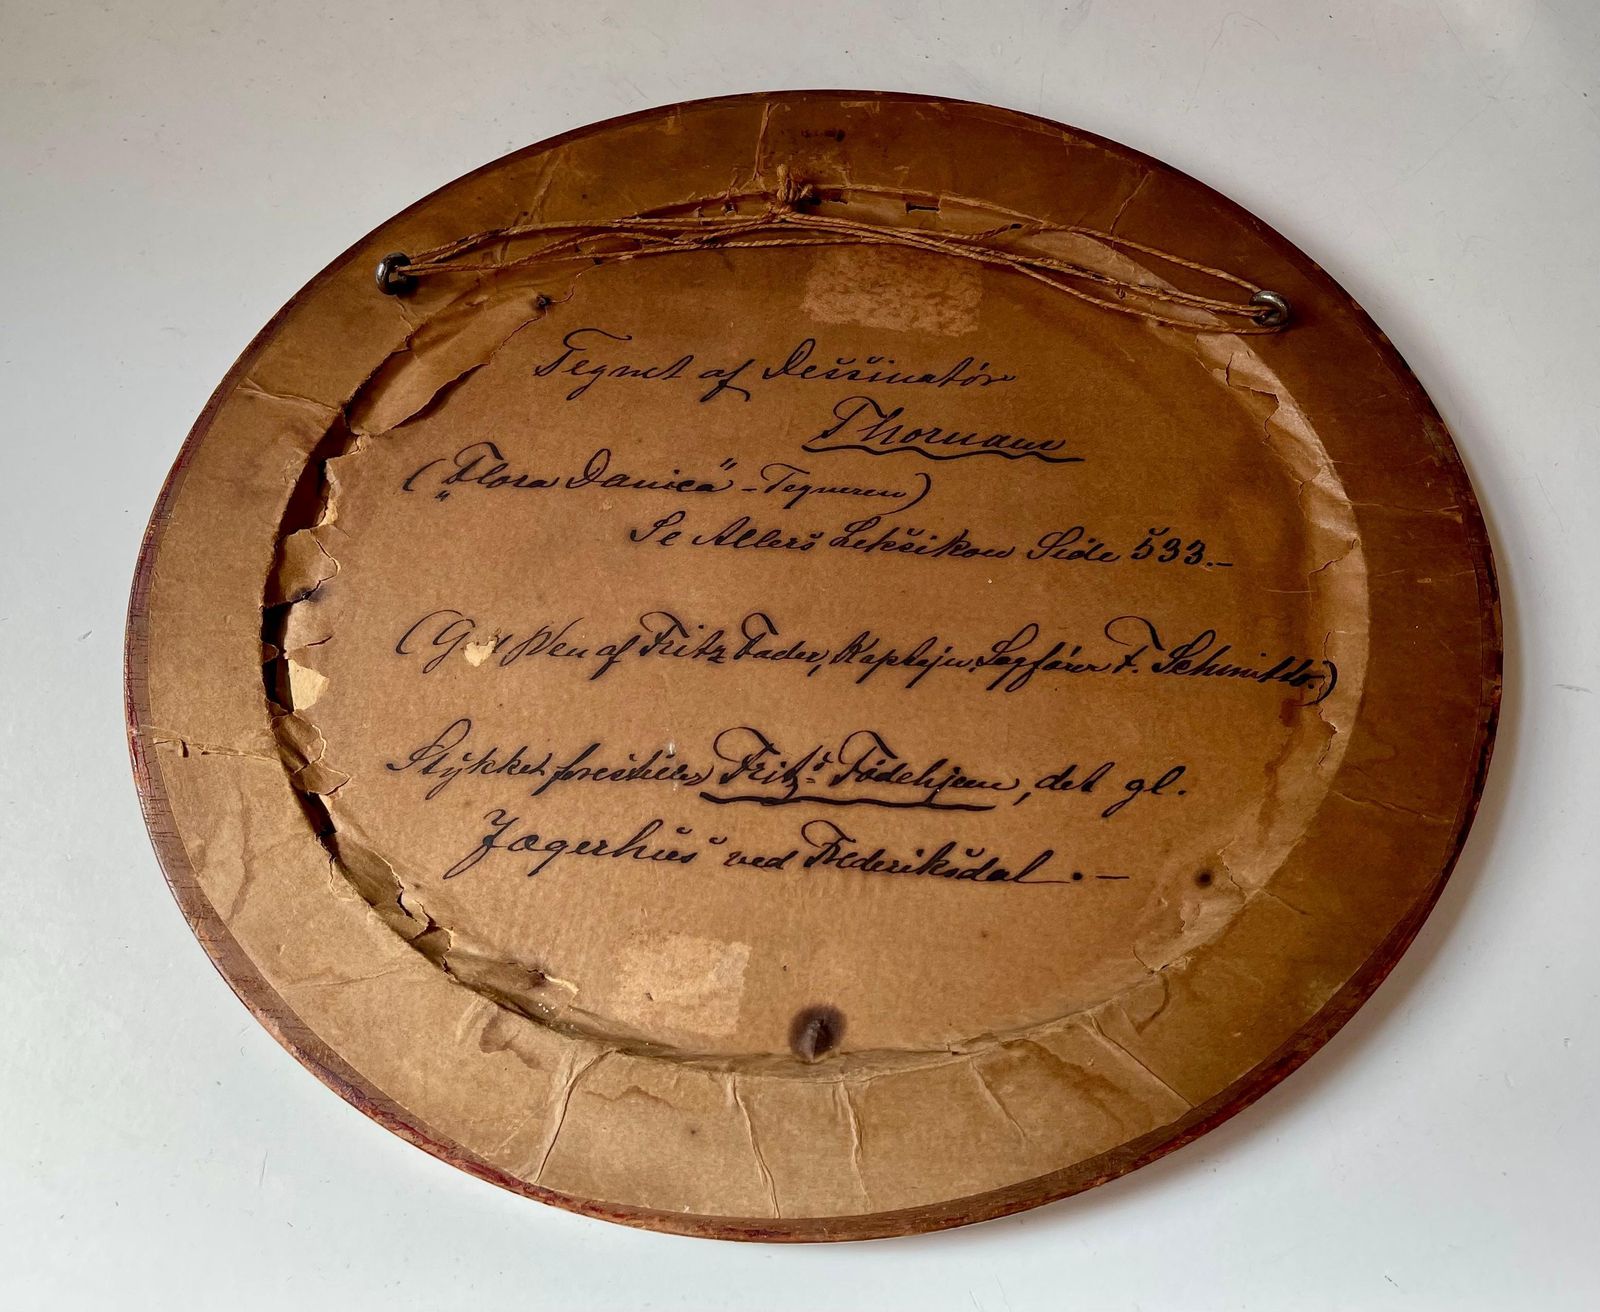 Tegnet af Dessinatør
Thornam
("Flora Danica"-Tegneren)
Se Allers Leksikon Side 533.-
(God Ven af Fritz Fader, Kaptajn, Sagfører F. Schmitto.)
Stykket forestiller Fritz's Fødehjem, det gl.
Jagerhus ved Frederiksdal.-